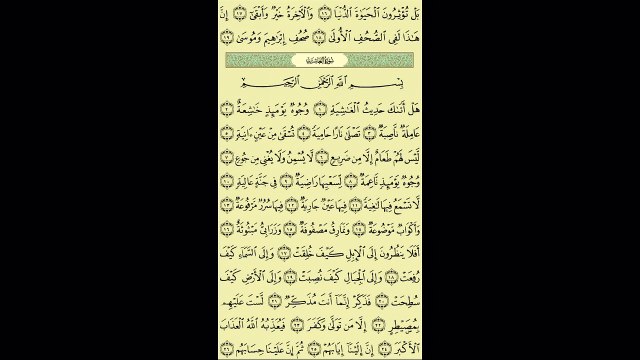 بَلْ تُؤْثِرُونَ الْحَيَاةَ الدُّنْيَا ۝١٦ وَالْآخِرَةُ خَيْرٌ وَأَبْقَىٰ ۝١٧ إِنَّ
هَٰذَا لَفِي الصُّحُفِ الْأُولَىٰ ۝١٨ صُحُفِ إِبْرَاهِيمَ وَمُوسَىٰ ۝١٩
سُورَةُ الْغَاشِيَةِ
بِسْمِ اللَّهِ الرَّحْمَٰنِ الرَّحِيمِ
هَلْ أَتَاكَ حَدِيثُ الْغَاشِيَةِ ۝١ وُجُوهٌ يَوْمَئِذٍ خَاشِعَةٌ ۝٢
عَامِلَةٌ نَاصِبَةٌ ۝٣ تَصْلَىٰ نَارًا حَامِيَةً ۝٤ تُسْقَىٰ مِنْ عَيْنٍ آنِيَةٍ ۝٥
لَيْسَ لَهُمْ طَعَامٌ إِلَّا مِنْ ضَرِيعٍ ۝٦ لَا يُسْمِنُ وَلَا يُغْنِي مِنْ جُوعٍ ۝٧
وُجُوهٌ يَوْمَئِذٍ نَاعِمَةٌ ۝٨ لِسَعْيِهَا رَاضِيَةٌ ۝٩ فِي جَنَّةٍ عَالِيَةٍ ۝١٠
لَا تَسْمَعُ فِيهَا لَاغِيَةً ۝١١ فِيهَا عَيْنٌ جَارِيَةٌ ۝١٢ فِيهَا سُرُرٌ مَرْفُوعَةٌ ۝١٣
وَأَكْوَابٌ مَوْضُوعَةٌ ۝١٤ وَنَمَارِقُ مَصْفُوفَةٌ ۝١٥ وَزَرَابِيُّ مَبْثُوثَةٌ ۝١٦
أَفَلَا يَنْظُرُونَ إِلَى الْإِبِلِ كَيْفَ خُلِقَتْ ۝١٧ وَإِلَى السَّمَاءِ كَيْفَ
رُفِعَتْ ۝١٨ وَإِلَى الْجِبَالِ كَيْفَ نُصِبَتْ ۝١٩ وَإِلَى الْأَرْضِ كَيْفَ
سُطِحَتْ ۝٢٠ فَذَكِّرْ إِنَّمَا أَنْتَ مُذَكِّرٌ ۝٢١ لَسْتَ عَلَيْهِمْ
بِمُصَيْطِرٍ ۝٢٢ إِلَّا مَنْ تَوَلَّىٰ وَكَفَرَ ۝٢٣ فَيُعَذِّبُهُ اللَّهُ الْعَذَابَ
الْأَكْبَرَ ۝٢٤ إِنَّ إِلَيْنَا إِيَابَهُمْ ۝٢٥ ثُمَّ إِنَّ عَلَيْنَا حِسَابَهُمْ ۝٢٦